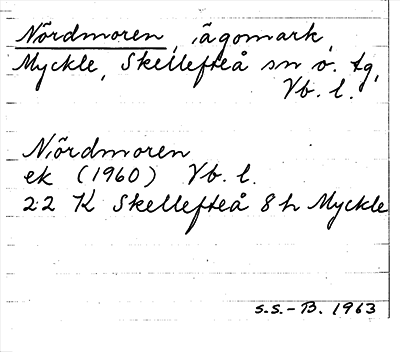 Nördmoren, ägomark,
Myckle, Skellefteå sn o. tg,
Vb. l.
Nördmoren
ek (1960) Vb. l.
22 K Skellefteå 8 h Myckle
S.S. - B. 1963